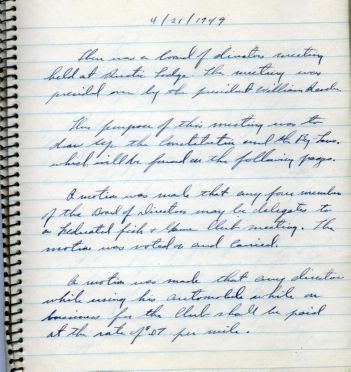 4/21/1949
There was a board of directors meeting
held at Rustic Lodge. The meeting was
presided over by the president William
The purpose of this meeting was to
draw up the Constitution and the By Laws.
which will be found on the following pages.
A motion was made that any four member
of the Board of Directors may be delegates to
a Federated fish & Game Club meeting. The
motion was voted on and carried.
A motion was made that any director
while using his automobile while on
business for the Club shall be paid
at the rate of .07 per mile.